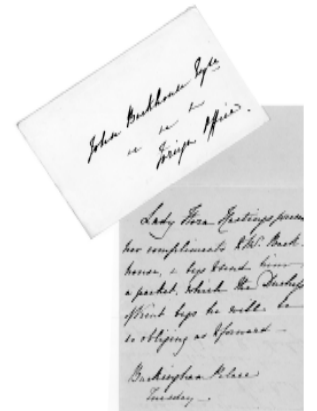 John Backhouse Esqre
&c &c &c
Foreign Office.
Lady Flora Hastings presents
her compliments to Mr. Back-
house, & begs to send him
a packet, which the Duchess
of Kent begs he will be
so obliging as to forward -
Buckingham Palace
Tuesday -